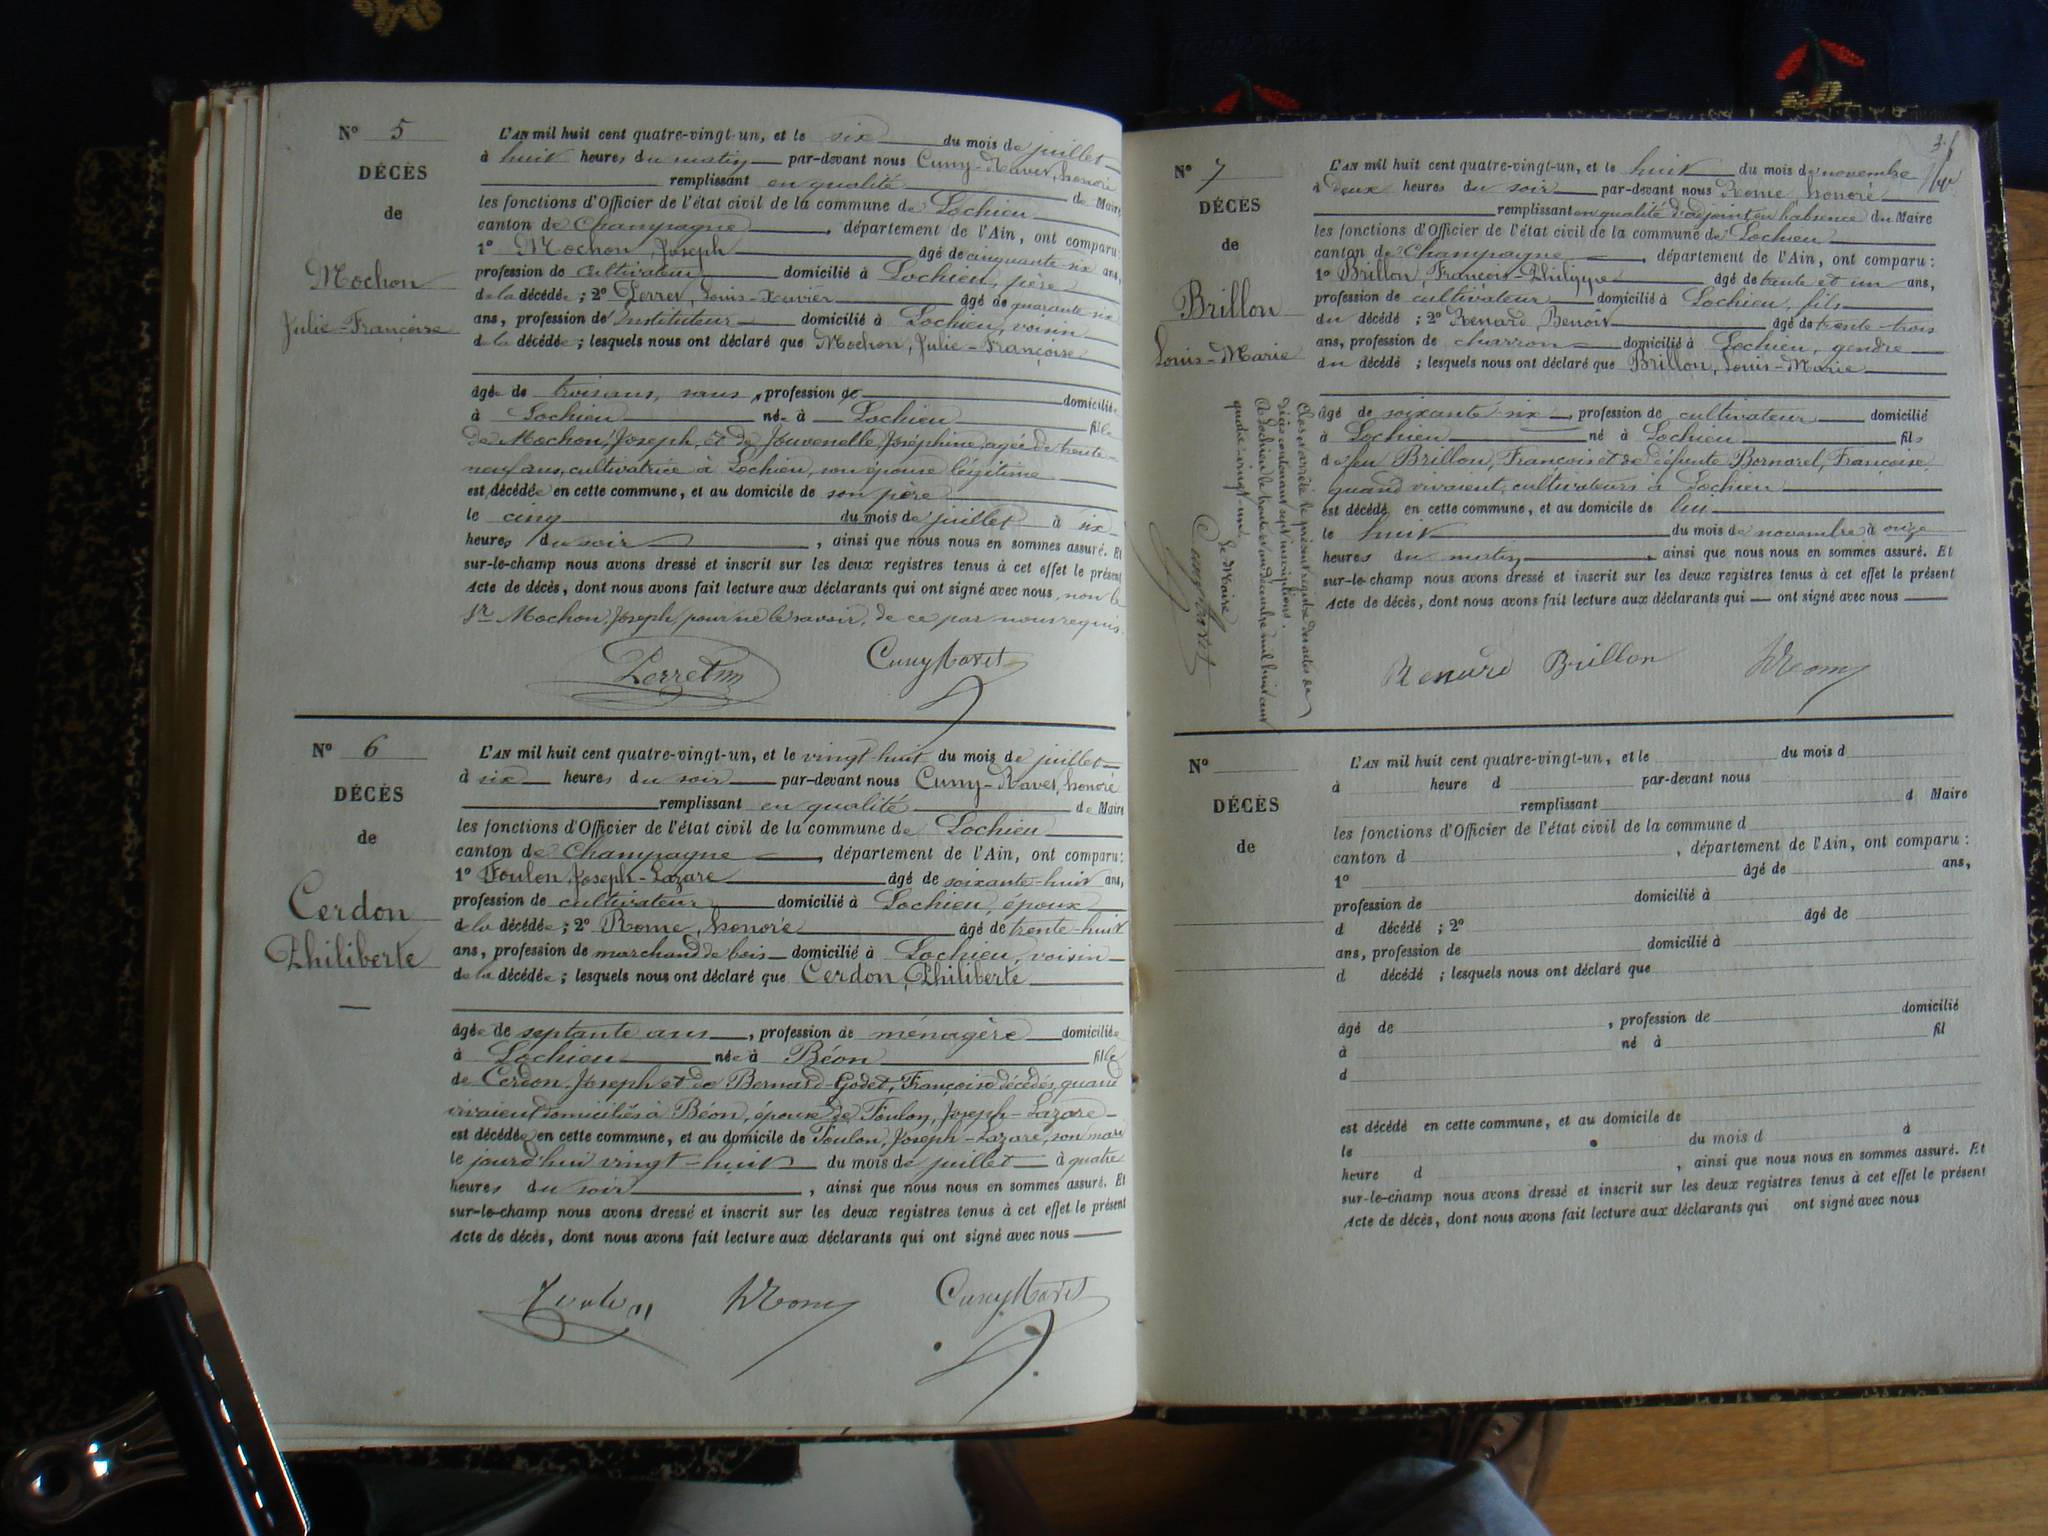 N° 5
DÉCÈS
de
Mochon
Julie-Françoise
L'AN mil huit cent quatre-vingt-un, et le six du mois de juillet
à huit heures du matin par-devant nous Cuny-Ravet, honoré
remplissant en qualité de Maire
les fonctions d'Officier de l'état civil de la commune de Lochieu
canton de Champagne, département de l'Ain, ont comparu:
1° Mochon, Joseph âgé de cinquante-six ans,
profession de cultivateur domicilié à Lochieu, père
de la décédée; 2° Perret, Louis-Xavier âgé de quarante six
ans, profession d'Instituteur domicilié à Lochieu, voisin
de la décédée; lesquels nous ont déclaré que Mochon, Julie-Françoise
âgée de trois ans, sans profession domiciliée
à Lochieu née à Lochieu fille
de Mochon, Joseph, et de Jouvenelle, Joséphine, agée de trente-
neuf ans, cultivatrice à Lochieu, son épouse légitime
est décédée en cette commune, et au domicile de son père
le cinq du mois de juillet à six
heures du soir, ainsi que nous nous en sommes assuré. Et
sur-le-champ nous avons dressé et inscrit sur les deux registres tenus à cet effet le présent
Acte de décès, dont nous avons fait lecture aux déclarants qui ont signé avec nous, non le
Sr Mochon, Joseph, pour ne le savoir, de ce par nous requis.
Perret Cuny Ravet
N° 6
DÉCÈS
de
Cerdon
Philiberte
L'AN mil huit cent quatre-vingt-un, et le vingt-huit du mois de juillet
à six heures du soir par-devant nous Cuny-Ravet, honoré
remplissant en qualité de Maire
les fonctions d'Officier de l'état civil de la commune de Lochieu
canton de Champagne, département de l'Ain, ont comparu:
1° Foulon, Joseph-Lazare âgé de soixante-huit ans,
profession de cultivateur domicilié à Lochieu, époux
de la décédée; 2° Rome, honoré âgé de trente-huit
ans, profession de marchand de bois domicilié à Lochieu, voisin
de la décédée; lesquels nous ont déclaré que Cerdon, Philiberte
âgée de septante ans, profession de ménagère domiciliée
à Lochieu née à Béon fille
de Cerdon, Joseph et de Bernard-Godet, Françoise décédés, quand
vivaient domiciliés à Béon, épouse de Foulon, Joseph-Lazare
est décédée en cette commune, et au domicile de Foulon, Joseph-Lazare, son mari
le jourd'hui vingt-huit du mois de juillet à quatre
heures du soir, ainsi que nous nous en sommes assuré. Et
sur-le-champ nous avons dressé et inscrit sur les deux registres tenus à cet effet le présent
Acte de décès, dont nous avons fait lecture aux déclarants qui ont signé avec nous
Foulon hRome Cuny Ravet
N° 7
DÉCÈS
de
Brillon
Louis-Marie
L'AN mil huit cent quatre-vingt-un, et le huit du mois de novembre
à deux heures du soir par-devant nous Rome, honoré
remplissant en qualité d'adjoint en l'absence du Maire
les fonctions d'Officier de l'état civil de la commune de Lochieu
canton de Champagne, département de l'Ain, ont comparu:
1° Brillon, François-Philippe âgé de trente et un ans,
profession de cultivateur domicilié à Lochieu, fils
du décédé; 2° Renard, Benoît âgé de trente-trois
ans, profession de charron domicilié à Lochieu, gendre
du décédé; lesquels nous ont déclaré que Brillon, Louis-Marie
âgé de soixante-six, profession de cultivateur domicilié
à Lochieu né à Lochieu fils
de feu Brillon, François et de défunte Bornarel, Françoise,
quand vivaient, cultivateurs à Lochieu
est décédé en cette commune, et au domicile de lui
le huit du mois de novembre à onze
heures du matin, ainsi que nous nous en sommes assuré. Et
sur-le-champ nous avons dressé et inscrit sur les deux registres tenus à cet effet le présent
Acte de décès, dont nous avons fait lecture aux déclarants qui ont signé avec nous
Renard Brillon hRome
Clos et arrêté le présent registre des actes de
décès contenant sept inscriptions.
A Lochieu le trente et un décembre mil huit cent
quatre-vingt-un.
Le Maire
Cuny Ravet
N°
DÉCÈS
de
L'AN mil huit cent quatre-vingt-un, et le du mois d
à heure d par-devant nous
remplissant d Maire
les fonctions d'Officier de l'état civil de la commune d
canton d, département de l'Ain, ont comparu:
1° âgé de ans,
profession de domicilié à
d décédé; 2° âgé de
ans, profession de domicilié à
d décédé; lesquels nous ont déclaré que
âgé de, profession de domicilié
à né à fil
d
est décédé en cette commune, et au domicile de
le du mois d à
heure d, ainsi que nous nous en sommes assuré. Et
sur-le-champ nous avons dressé et inscrit sur les deux registres tenus à cet effet le présent
Acte de décès, dont nous avons fait lecture aux déclarants qui ont signé avec nous